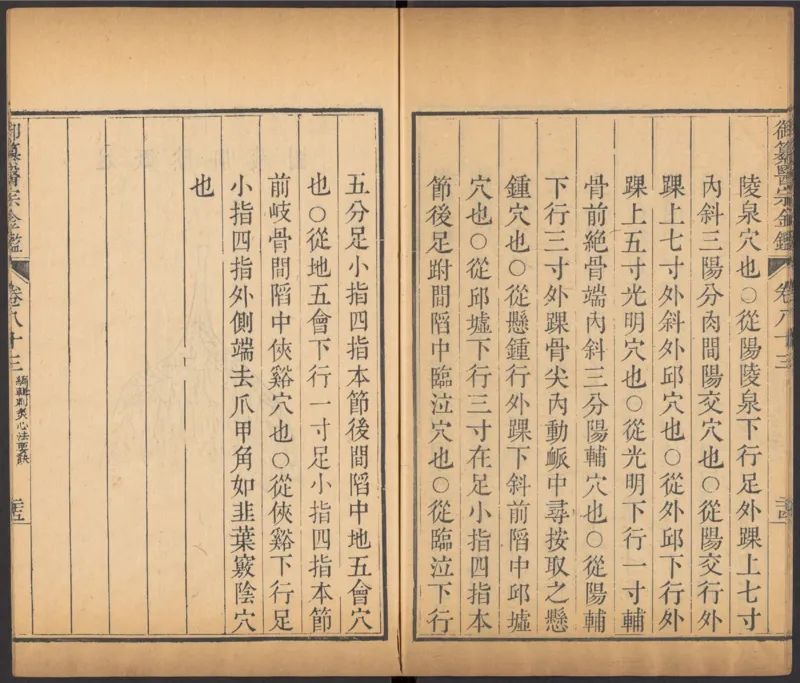 御纂醫宗金鑑
卷八十三
陵泉穴也○從陽陵泉下行足外踝上七寸
內斜三陽分肉間陽交穴也○從陽交行外
踝上七寸外斜外邱穴也○從外邱下行外
踝上五寸光明穴也○從光明下行一寸輔
骨前絶骨端內斜三分陽輔穴也○從陽輔
下行三寸外踝骨尖內動䘑中尋按取之懸
鍾穴也○從懸鍾行外踝下斜前陷中邱墟
穴也○從邱墟下行三寸在足小指四指本
節後足跗間陷中臨泣穴也○從臨泣下行
五分足小指四指本節後間陷中地五會穴
也○從地五會下行一寸足小指四指本節
前岐骨間陷中俠谿穴也○從俠谿下行足
小指四指外側端去爪甲角如韭葉竅陰穴
也
御纂醫宗金鑑
卷八十三
編輯刺灸心法要訣